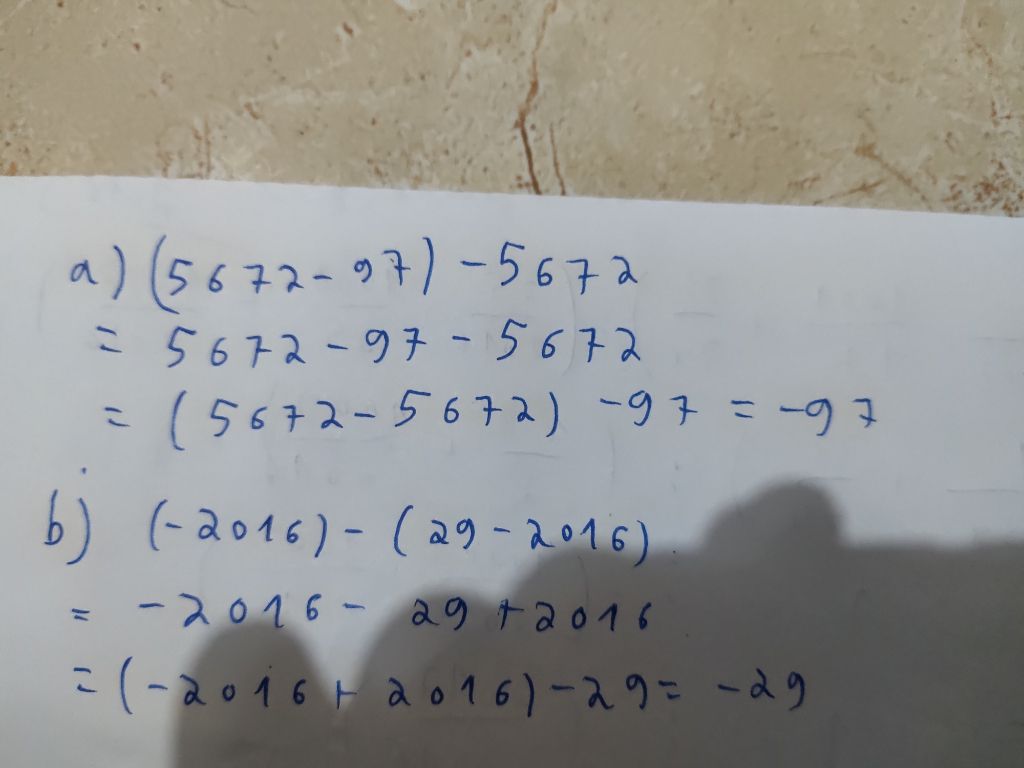 a) (5672 - 97) - 5672
= 5672 - 97 - 5672
= (5672 - 5672) - 97 = -97
b) (-2016) - (29 - 2016)
= -2016 - 29 + 2016
= (-2016 + 2016) - 29 = -29